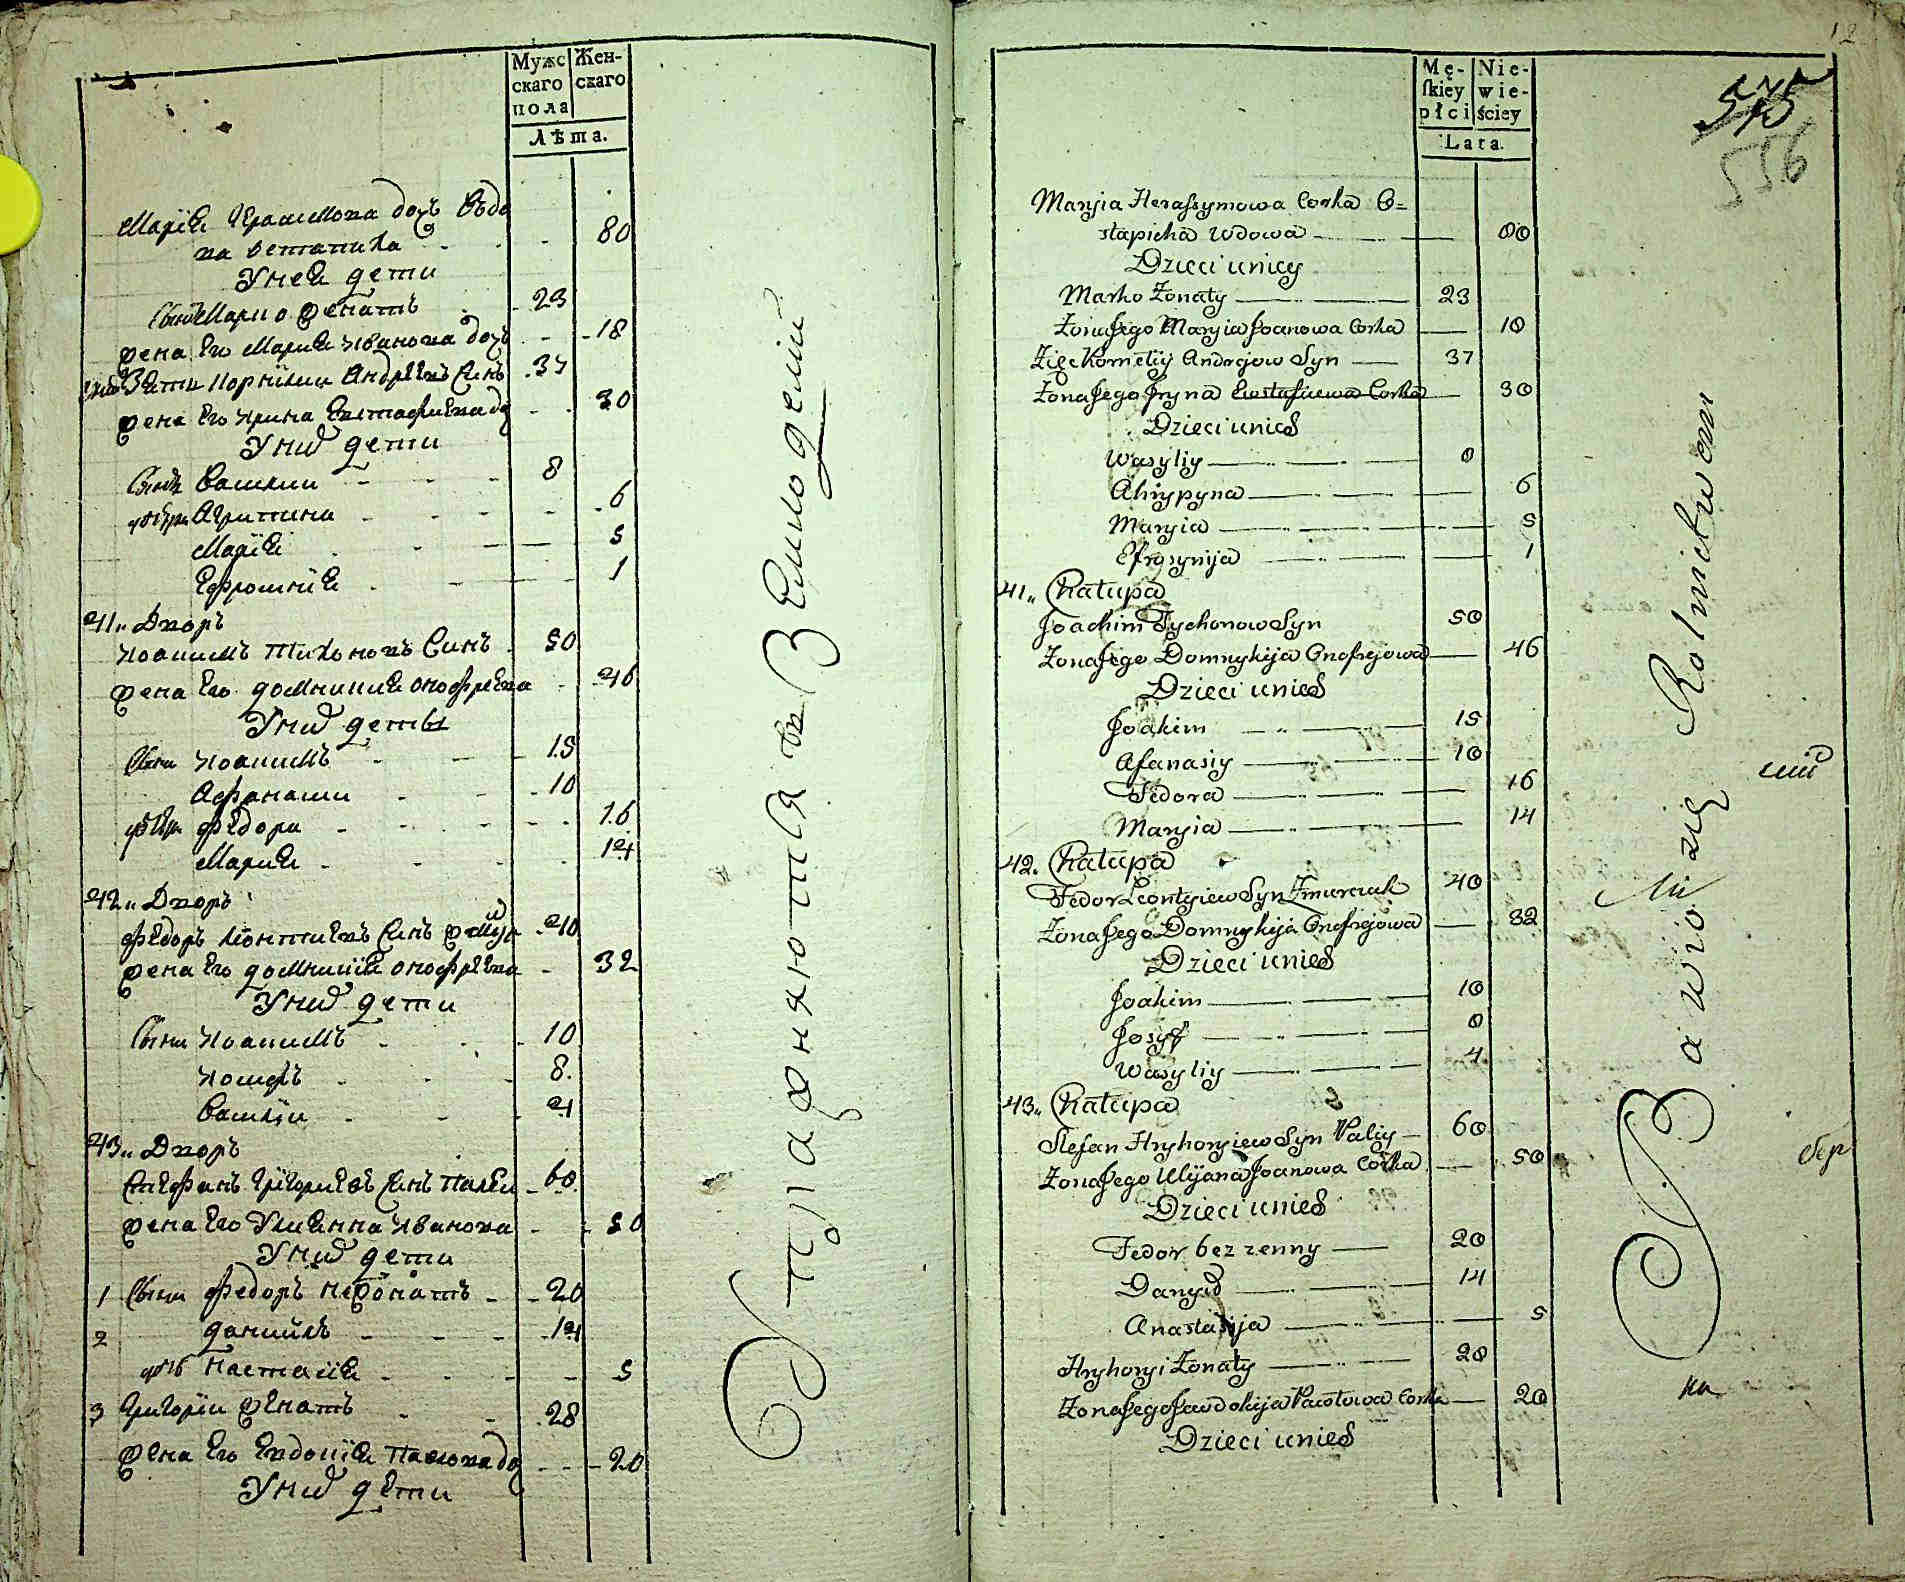 Мужс
скаго
пола
Жен-
скаго
Лѣта.
Марїя Герасимова дочь Вдо
ва остапиха 80
У нея дети
Сынъ Марко женатъ 23
жена Его Мария Иванова дочь 18
Зять Корнилии Андреевъ Синъ 37
жена Его Ирина Евстафиева до 30
У них дети
Сынъ Василии 8
Агрипина 6
Марїя 5
Ефросинїя 1
41,, Дворъ
Иоакимъ Тихоновъ Синъ 50
жена Его домникия оноѳреева 46
У них деты
Сыни Иоакимъ 15
Афанасии 10
Федора 16
Мария 14
42,, Дворъ
Федоръ Леонтиевъ Синъ 40
жена Его домникїя оноѳреева 32
У них дети
Сыни Иоакимъ 10
Иосифъ 8.
Василїи 4
43,, Дворъ
Стефанъ Григориевъ Синъ Палии 60
жена Его Улиянна Иванова 50
У них дети
1 Сыни Федоръ нежонатъ 20
2 данийлъ 14
настасїя 5
3 Григорїи женатъ 28
жена Его Евдокїя Павлова до 20
У них дети
Упражняются въ Земледелии
12
Mę-
skiey
płci
Nie-
wie-
ściey
Lata.
545
556
Maryia Herassymowa Corka O=
stapicha Wdowa 80
Dzieci uniey
Marko Żonaty 23
Żona Jego Maryia Joanowa Corka 18
Zięć Korneliy Andrejow Syn 37
Żona Jego Jryna Ewstafiiewa Corka 30
Dzieci unich
Wasyliy 8
Ahrypyna 6
Maryia 5
Efrosynija 1
41,, Chałupa
Joachim Tychonow Syn 50
Żona Jego Domnykija Onofrejowa 46
Dzieci unich
Joakim 15
Afanasiy 10
Fedora 16
Maryia 14
42. Chałupa
Fedor Leontyiew Syn Żmurciak 40
Żona Jego Domnykija Onofrejowa 32
Dzieci unich
Joakim 10
Josyf 8
Wasyliy 4
43,, Chałupa
Stefan Hryhoryiew Syn Paliy 60
Żona Jego Ulijana Joanowa Corka 50
Dzieci unich
Fedor bez zenny 20
Danyił 14
Anastasija 5
Hryhoryi Żonaty 28
Żona Jego Jawdokija Pawłowa Corka 20
Dzieci unich
Bawio zię Rolnictwem